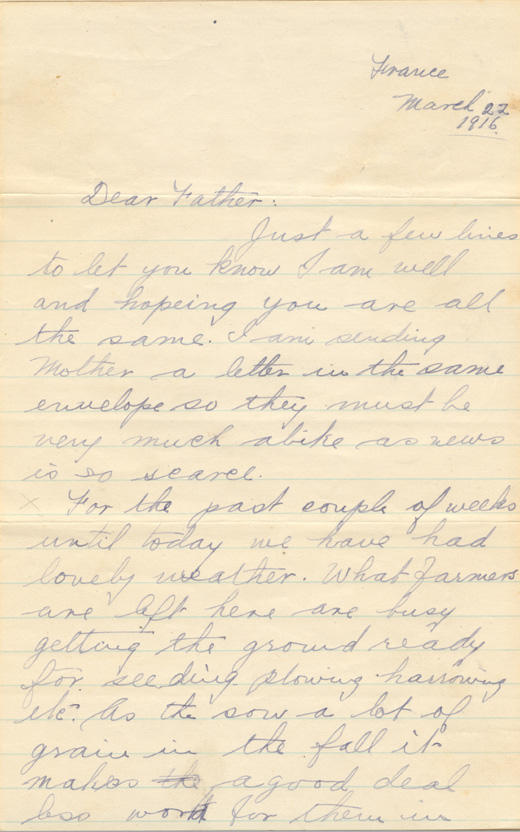 France
March 22
1916.
Dear Father:
Just a few lines
to let you know I am well
and hopeing you are all
the same. I am sending
Mother a letter in the same
envelope so they must be
very much alike as news
is so scarce.
x For the past couple of weeks
until today we have had
lovely weather. What farmers
are left here are busy
getting the ground ready
for seeding plowing harrowing
etc. As the sow a lot of
grain in the fall it
makes the a good deal
less work for them in